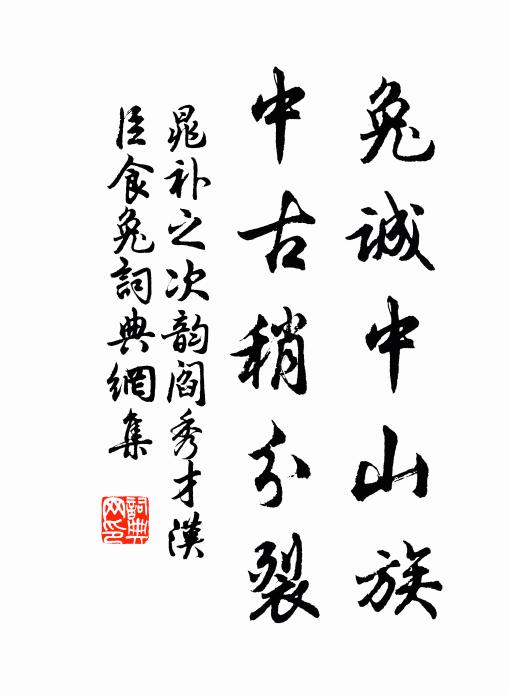 兔誠中山族
中古稍分裂
晁补之次韵閻秀才漢
臣食兔詞典網集
詞典网印